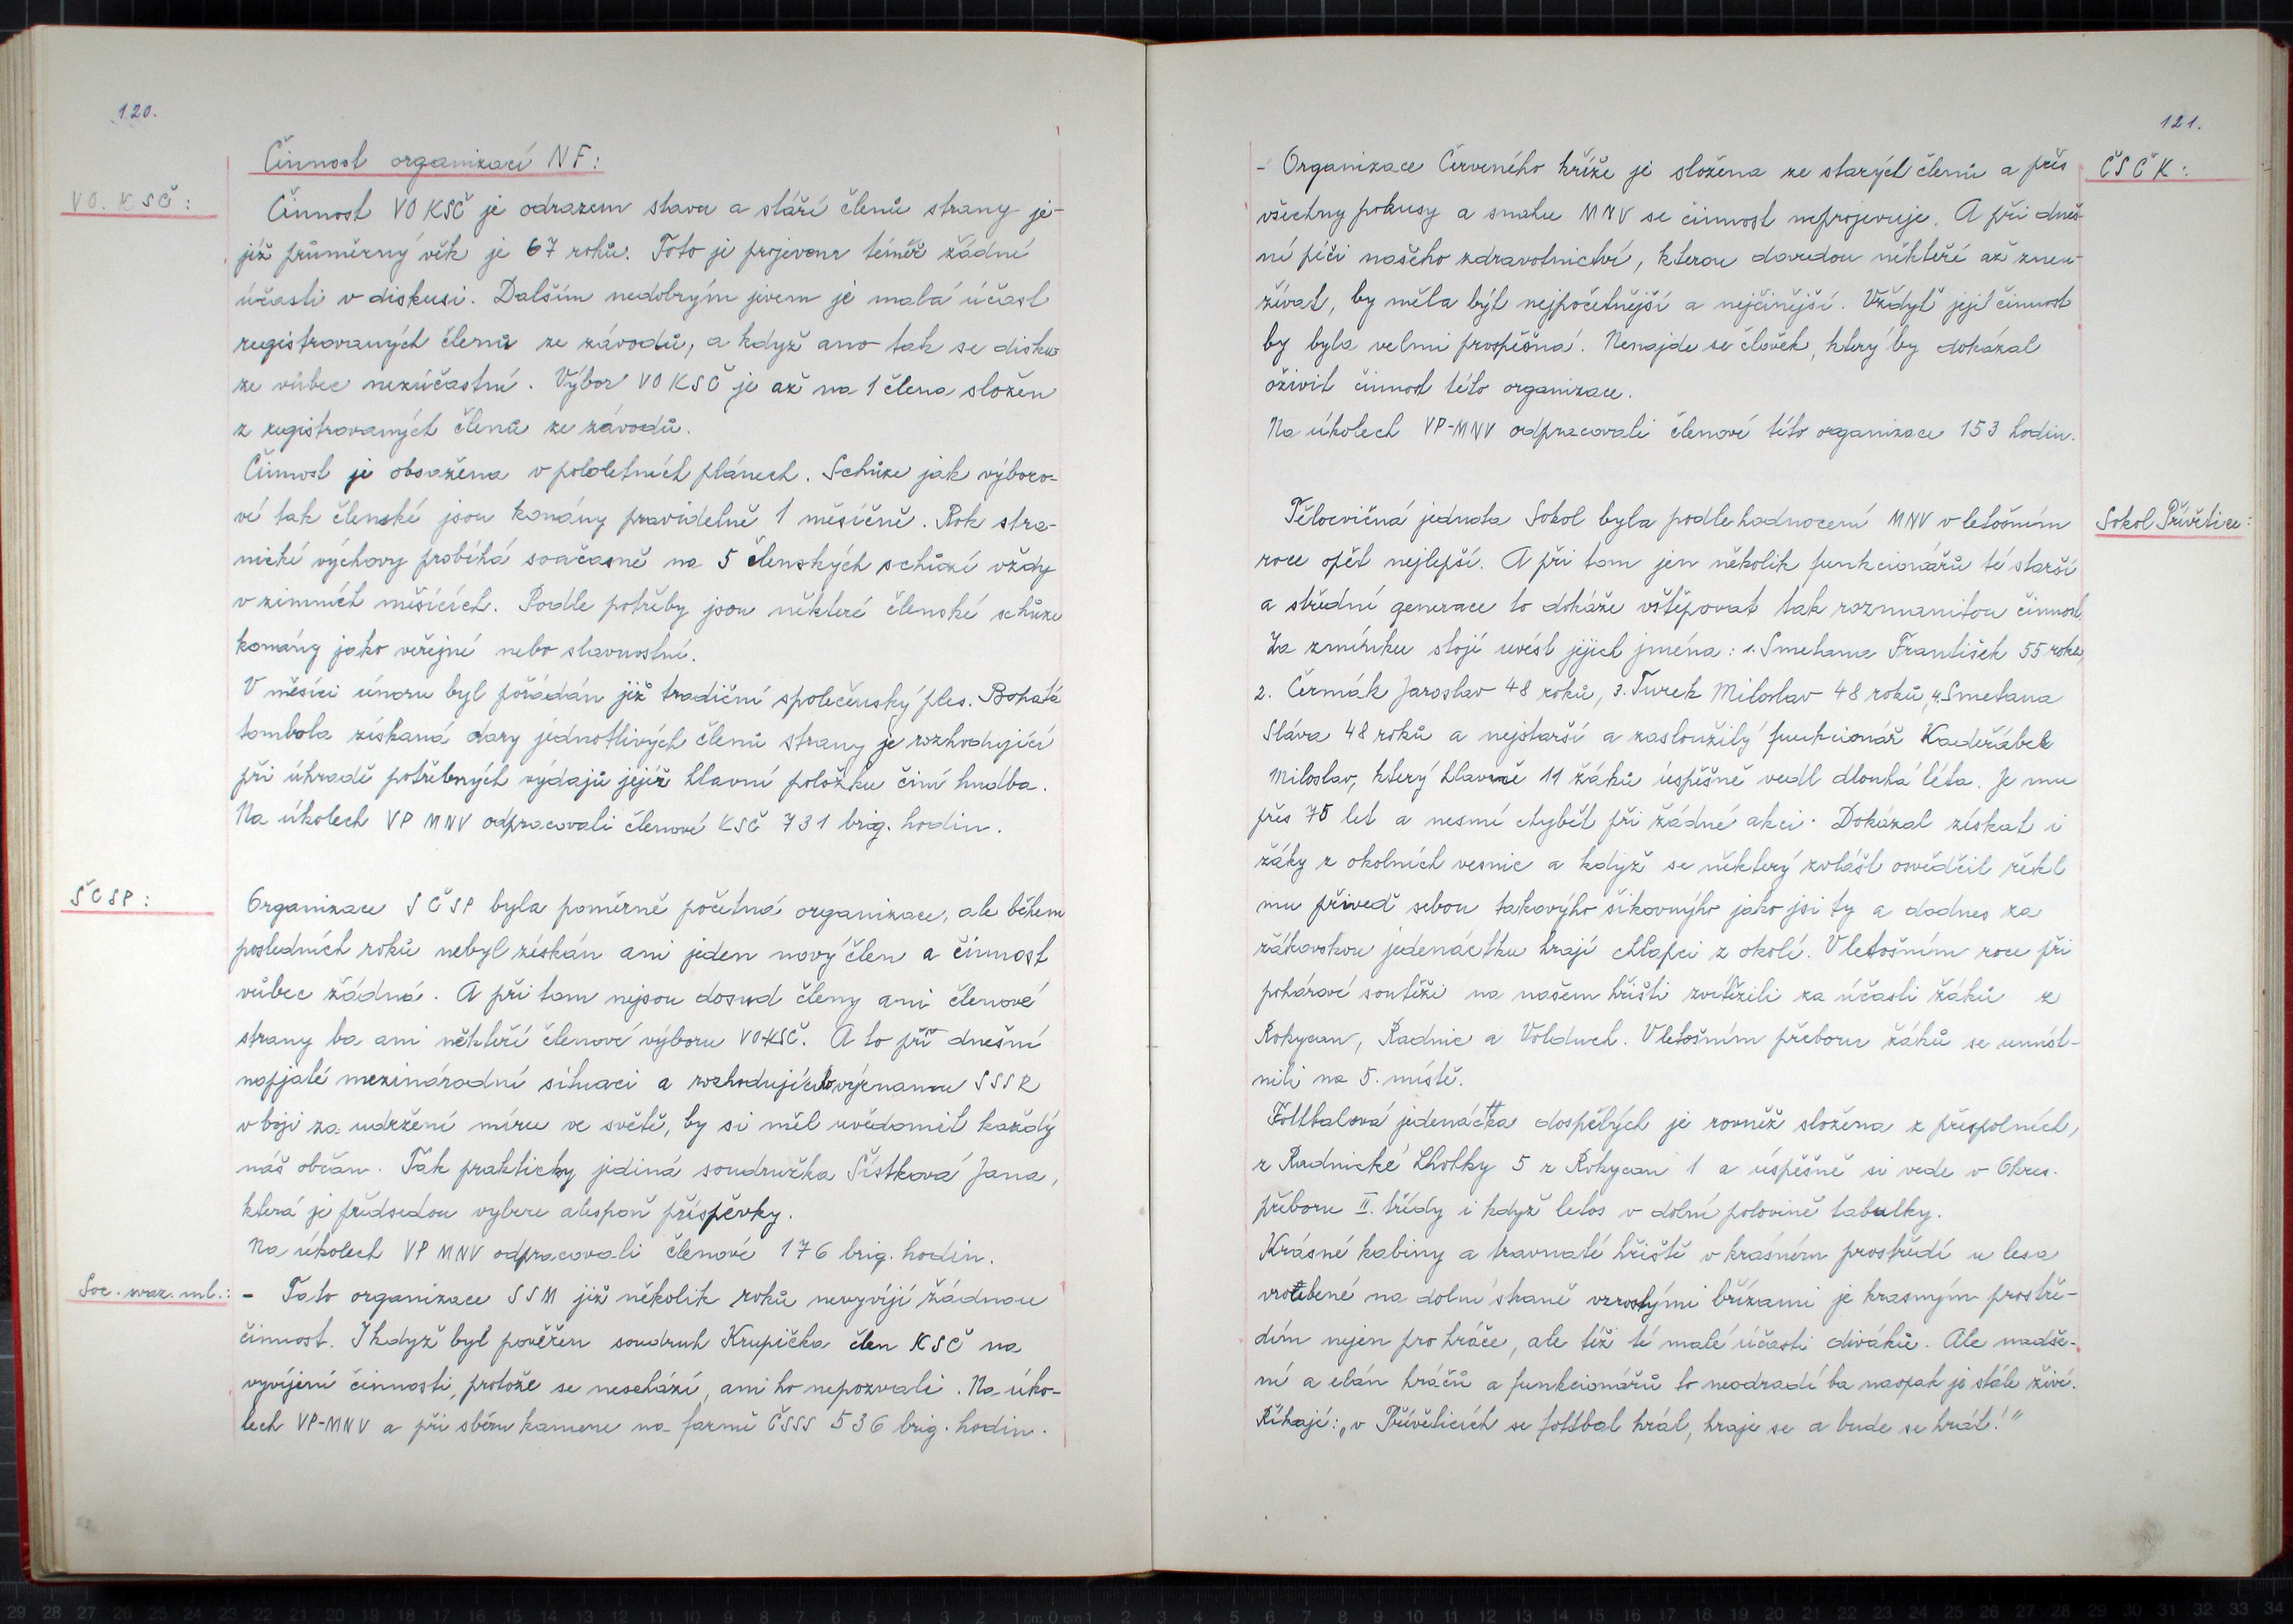 120.
Činnost organizací NF:
VO. KSČ:
Činnost VO KSČ je odrazem stavu a stáří členů strany je-
jíž průměrný věk je 67 roků. Toto je projevem téměř žádné
účasti v diskusi. Dalším nedobrým jevem je malá účast
registrovaných členů ze závodů, a když ano tak se disku
ze vůbec nezúčastní. Výbor VO KSČ je až na 1 člena složen
z registrovaných členů ze závodů.
Činnost je obsažena v pololetních plánech. Schůze jak výboro-
vé tak členské jsou konány pravidelně 1 měsíčně. Rok stra-
nické výchovy probíhá současně na 5 členských schůzí vždy
v zimních měsících. Podle potřeby jsou některé členské schůze
konány jako veřejné nebo slavnostní.
V měsíci únoru byl pořádán již tradiční společenský ples. Bohatá
tombola získaná dary jednotlivých členů strany je rozhodující
při úhradě potřebných výdajů jejíž hlavní položku činí hudba.
Na úkolech VP MNV odpracovali členové KSČ 731 brig. hodin.
SČSP:
Organizace SČSP byla poměrně početná organizace, ale během
posledních roků nebyl získán ani jeden nový člen a činnost
vůbec žádná. A při tom nejsou dosud členy ani členové
strany ba ani někteří členové výboru VO-KSČ. A to při dnešní
napjaté mezinárodní situaci a rozhodujícího významu SSSR
v boji za udržení míru ve světě, by si měl uvědomit každý
náš občan. Tak prakticky jediná soudružka Šístková Jana,
která je předsedou vybere alespoň příspěvky.
Na úkolech VP MNV odpracovali členové 176 brig. hodin.
Soc. svaz. ml.:
- Tato organizace SSM již několik roků nevyvíjí žádnou
činnost. I když byl pověřen soudruh Krupička člen KSČ na
vyvíjení činnosti, protože se neschází, ani ho nepozvali. Na úko-
lech VP-MNV a při sběru kamene na farmě ČSSS 536 brig. hodin.
121.
ČSČK:
- Organizace Červeného kříže je složena ze starých členů a přes
všechny pokusy a snahu MNV se činnost neprojevuje. A při dneš-
ní péči našeho zdravotnictví, kterou dovedou někteří až zneu-
žívat, by měla být nejpočetnější a nejčinější. Vždyť její činnost
by byla velmi prospěšná. Nenajde se člověk, který by dokázal
oživit činnost této organizace.
Na úkolech VP-MNV odpracovali členové této organizace 153 hodin.
Sokol Přívětice:
Tělocvičná jednota Sokol byla podle hodnocení MNV v letošním
roce opět nejlepší. A při tom jen několik funkcionářů té starší
a střední generace to dokáže vštěpovat tak rozmanitou činnost.
Za zmínku stojí uvést jejich jména: 1. Smetana František 55 roků,
2. Čermák Jaroslav 48 roků, 3. Turek Miloslav 48 roků, 4. Smetana
Sláva 48 roků a nejstarší a zasloužilý funkcionář Kadeřábek
Miloslav, který hlavně 11 žáků úspěšně vedl dlouhá léta. Je mu
přes 75 let a nesmí chybět při žádné akci. Dokázal získat i
žáky z okolních vesnic a když se některý zvlášt osvědčil řekl
mu přiveď sebou takovýho šikovnýho jako jsi ty a dodnes za
žákovskou jedenáctku hrají chlapci z okolí. V letošním roce při
pohárové soutěži na našem hřišti zvítězili za účasti žáků z
Rokycan, Radnic a Volduch. V letošním přeboru žáků se umíst-
nili na 5. místě.
Fottbalová jedenáctka dospělých je rovněž složena z přespolních,
z Radnické Lhotky 5 z Rokycan 1 a úspěšně si vede v Okres.
přeboru II. třídy i když letos v dolní polovině tabulky.
Krásné kabiny a travnaté hřiště v krásném prostředí u lesa
vroubené na dolní straně vzrostlými břízami je krasným prostře-
dím nejen pro hráče, ale též té malé účasti diváků. Ale nadše-
ní a elán hráčů a funkcionářů to neodradí ba naopak je stále živé.
Říkají: „v Příveticích se fottbal hrál, hraje se a bude se hrát!"